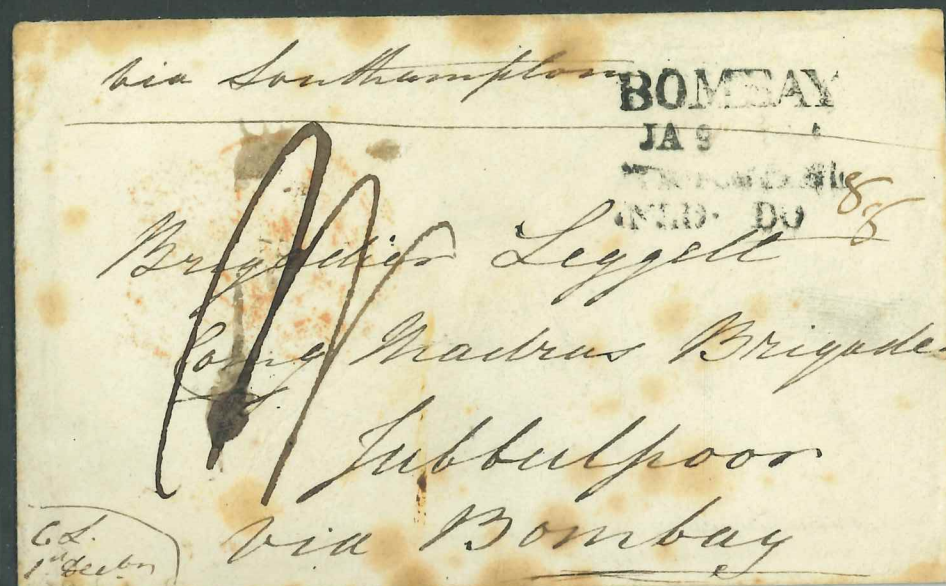 via Southampton
BOMBAY
JA 9
DO
88
Brigadier Leggett
Comg Madras Brigade
Jubbulpoor
via Bombay
C L.
1st Decbr